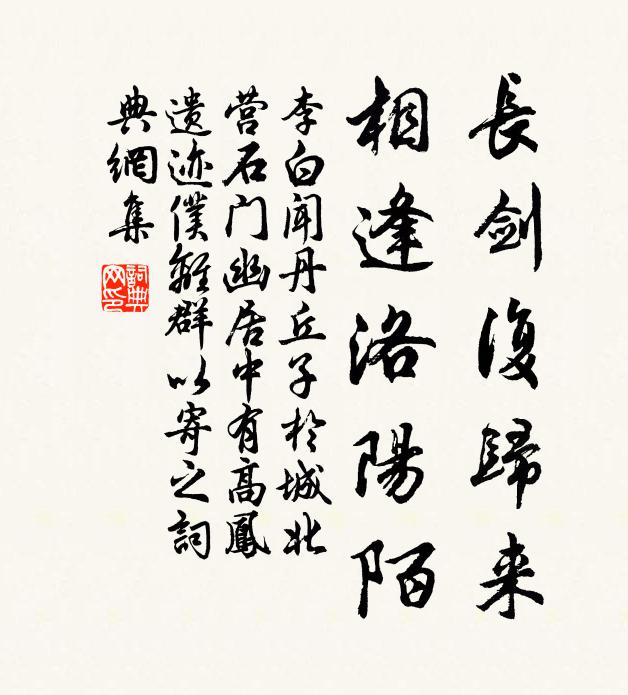 長劍復歸来
相逢洛陽陌
李白闻丹丘子於城北
营石门幽居中有高鳳
遗迹僕離群以寄之詞
典網集
詞典网印